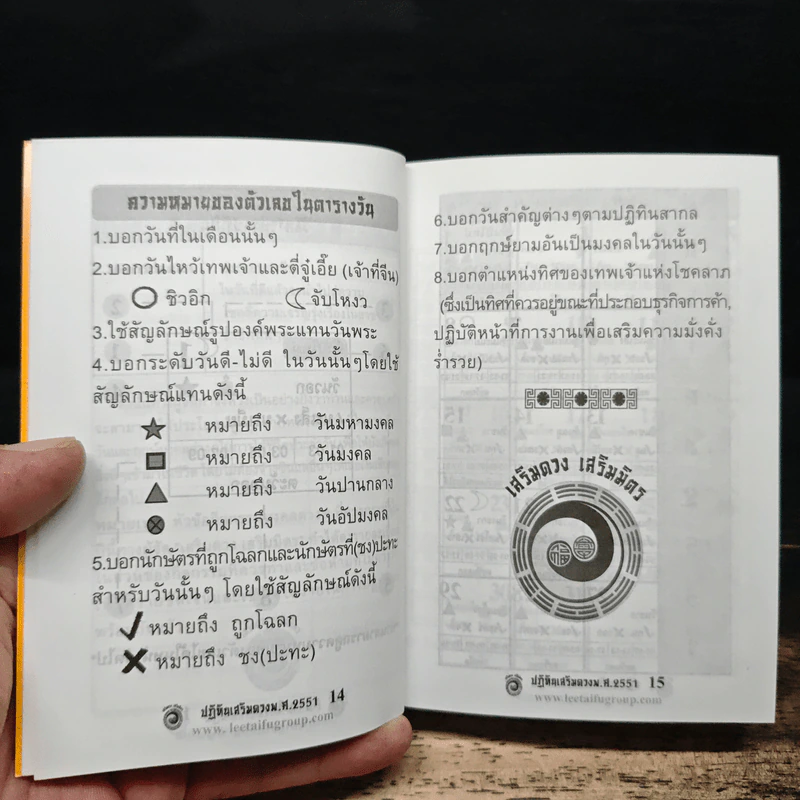 ความหมายของตัวเลขในตารางวัน
1.บอกวันที่ในเดือนนั้นๆ
2.บอกวันไหว้เทพเจ้าและตี่จู่เอี๊ย (เจ้าที่จีน)
ชิวอิก จับโหงว
3.ใช้สัญลักษณ์รูปองค์พระแทนวันพระ
4.บอกระดับวันดี-ไม่ดี ในวันนั้นๆโดยใช้
สัญลักษณ์แทนดังนี้
หมายถึง วันมหามงคล
หมายถึง วันมงคล
หมายถึง วันปานกลาง
หมายถึง วันอัปมงคล
5.บอกนักษัตรที่ถูกโฉลกและนักษัตรที่(ชง)ปะทะ
สำหรับวันนั้นๆ โดยใช้สัญลักษณ์ดังนี้
หมายถึง ถูกโฉลก
หมายถึง ชง(ปะทะ)
ปฏิทินเสริมดวงพ.ศ.2551 14
www.leetaifugroup.com
6.บอกวันสำคัญต่างๆตามปฏิทินสากล
7.บอกฤกษ์ยามอันเป็นมงคลในวันนั้นๆ
8.บอกตำแหน่งทิศของเทพเจ้าแห่งโชคลาภ
(ซึ่งเป็นทิศที่ควรอยู่ขณะที่ประกอบธุรกิจการค้า,
ปฏิบัติหน้าที่การงานเพื่อเสริมความมั่งคั่ง
ร่ำรวย)
เสริมดวง เสริมมิตร
ปฏิทินเสริมดวงพ.ศ.2551 15
www.leetaifugroup.com